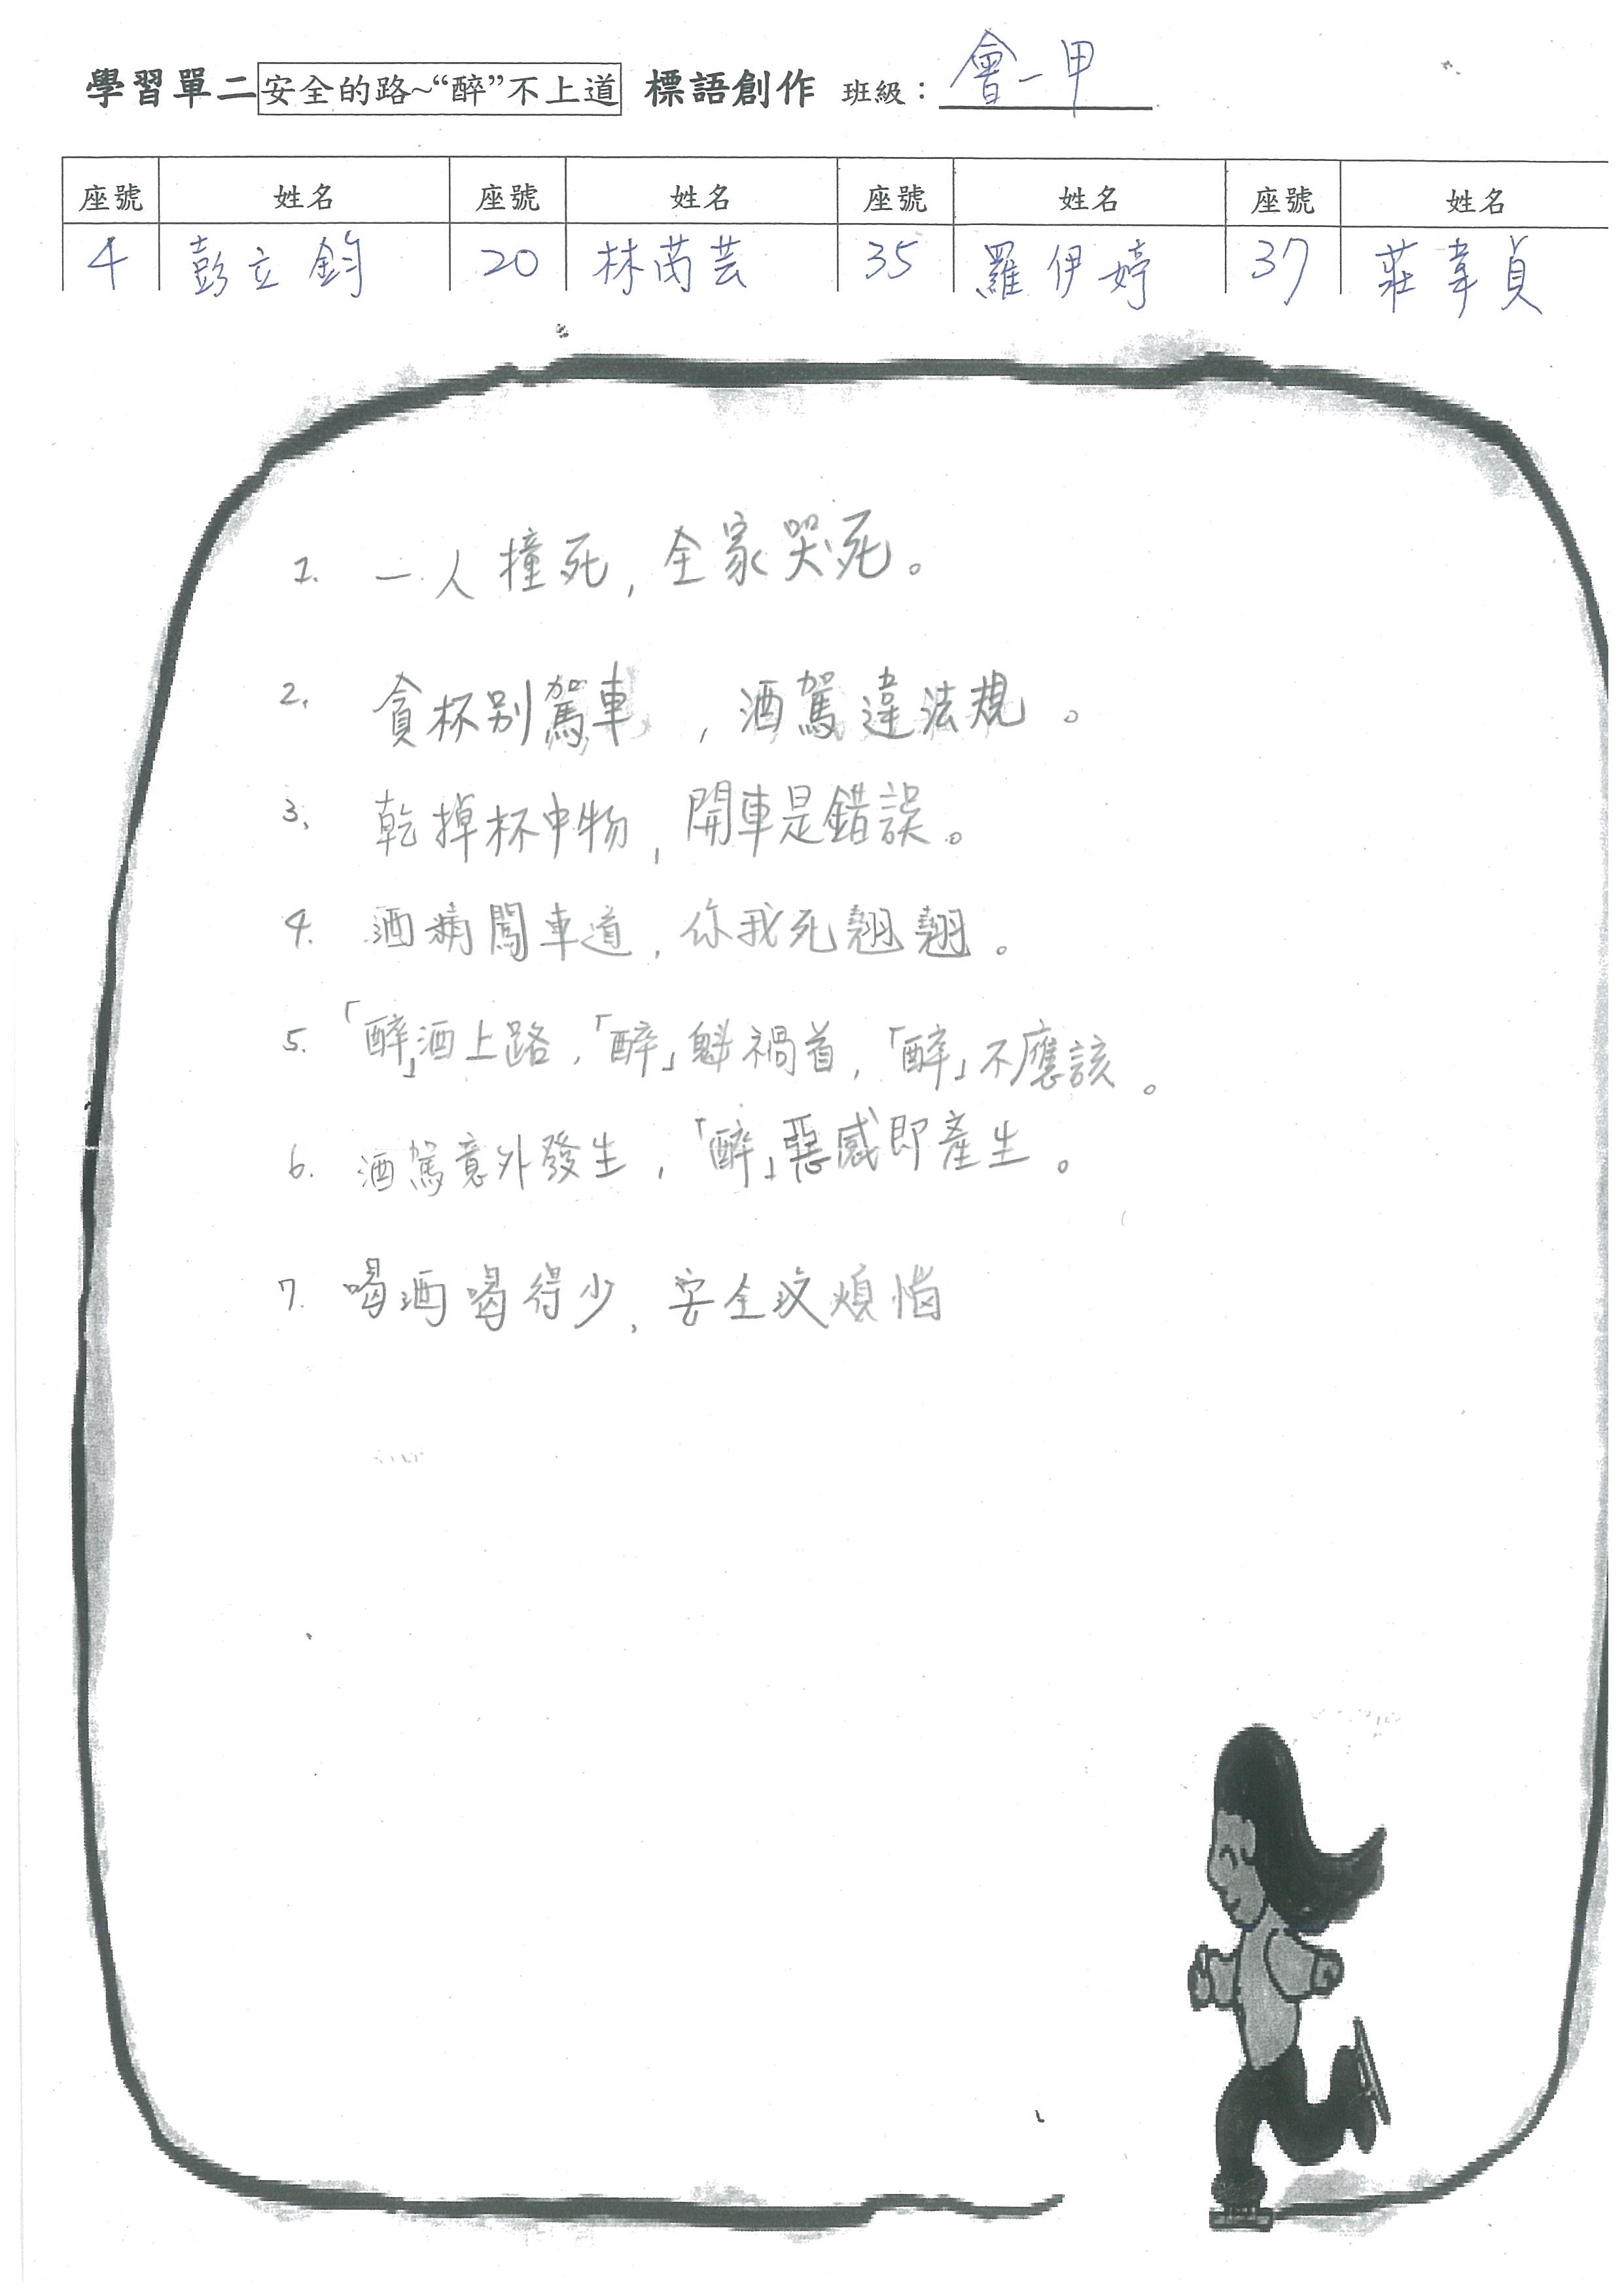 學習單二 安全的路~“醉”不上道 標語創作 班級：會一甲
座號 姓名 座號 姓名 座號 姓名 座號 姓名
4 彭立鈞 20 林芮芸 35 羅伊婷 37 莊韋貞
1. 一人撞死，全家哭死。
2. 貪杯別駕車，酒駕違法規。
3. 乾掉杯中物，開車是錯誤。
4. 酒病闖車道，你我死翹翹。
5. 「醉」酒上路，「醉」魁禍首，「醉」不應該。
6. 酒駕意外發生，「醉」惡感即產生。
7. 喝酒喝得少，安全沒煩惱